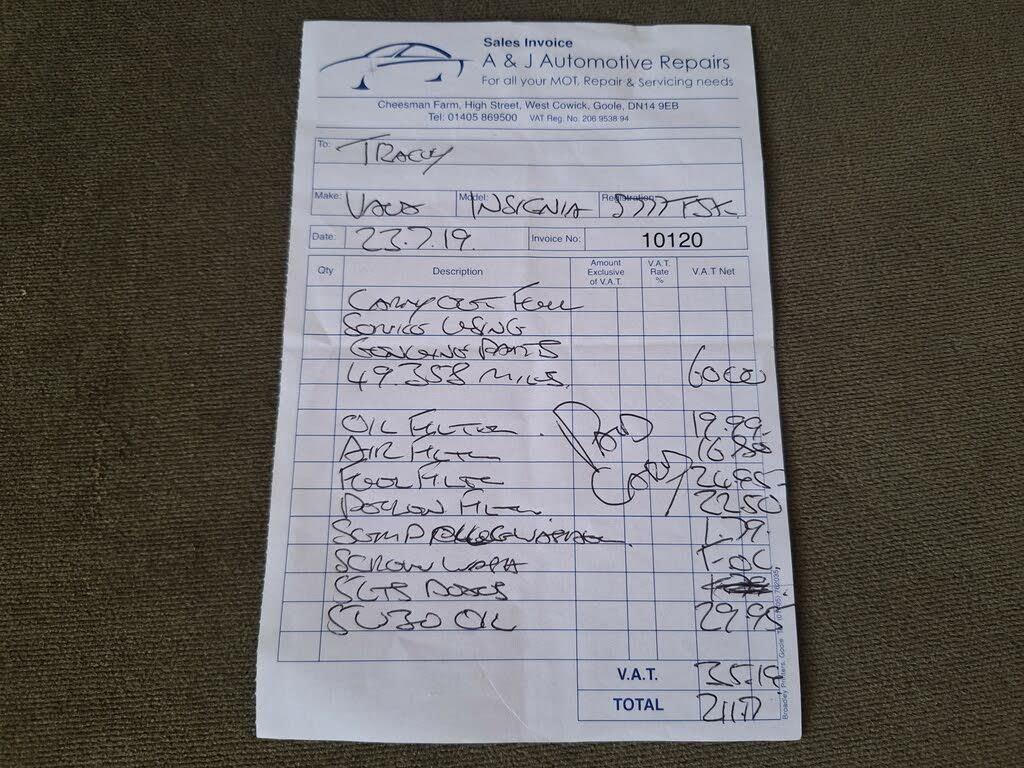 Sales Invoice
A & J Automotive Repairs
For all your MOT, Repair & Servicing needs
Cheesman Farm, High Street, West Cowick, Goole, DN14 9EB
Tel: 01405 869500 VAT Reg. No. 206 9538 94
To: TRACEY
Make: VAUX Model: INSIGNIA Registration:
Date: 23.7.19. Invoice No: 10120
Qty Description Amount Exclusive of V.A.T. V.A.T. Rate % V.A.T Net
CARRY OUT FULL
SERVICE USING
GENUINE PARTS
49.358 MILES. 60.00
OIL FILTER 19.99
AIR FILTER 16.80
FUEL FILTER 24.95
POLLEN FILTER 22.50
SUMP PLUG WASHER 1.79
SCREEN WASH F.O.C
5W30 OIL 29.95
PAID
V.A.T. 35.19
TOTAL 211.17
Broadley Printers, Goole